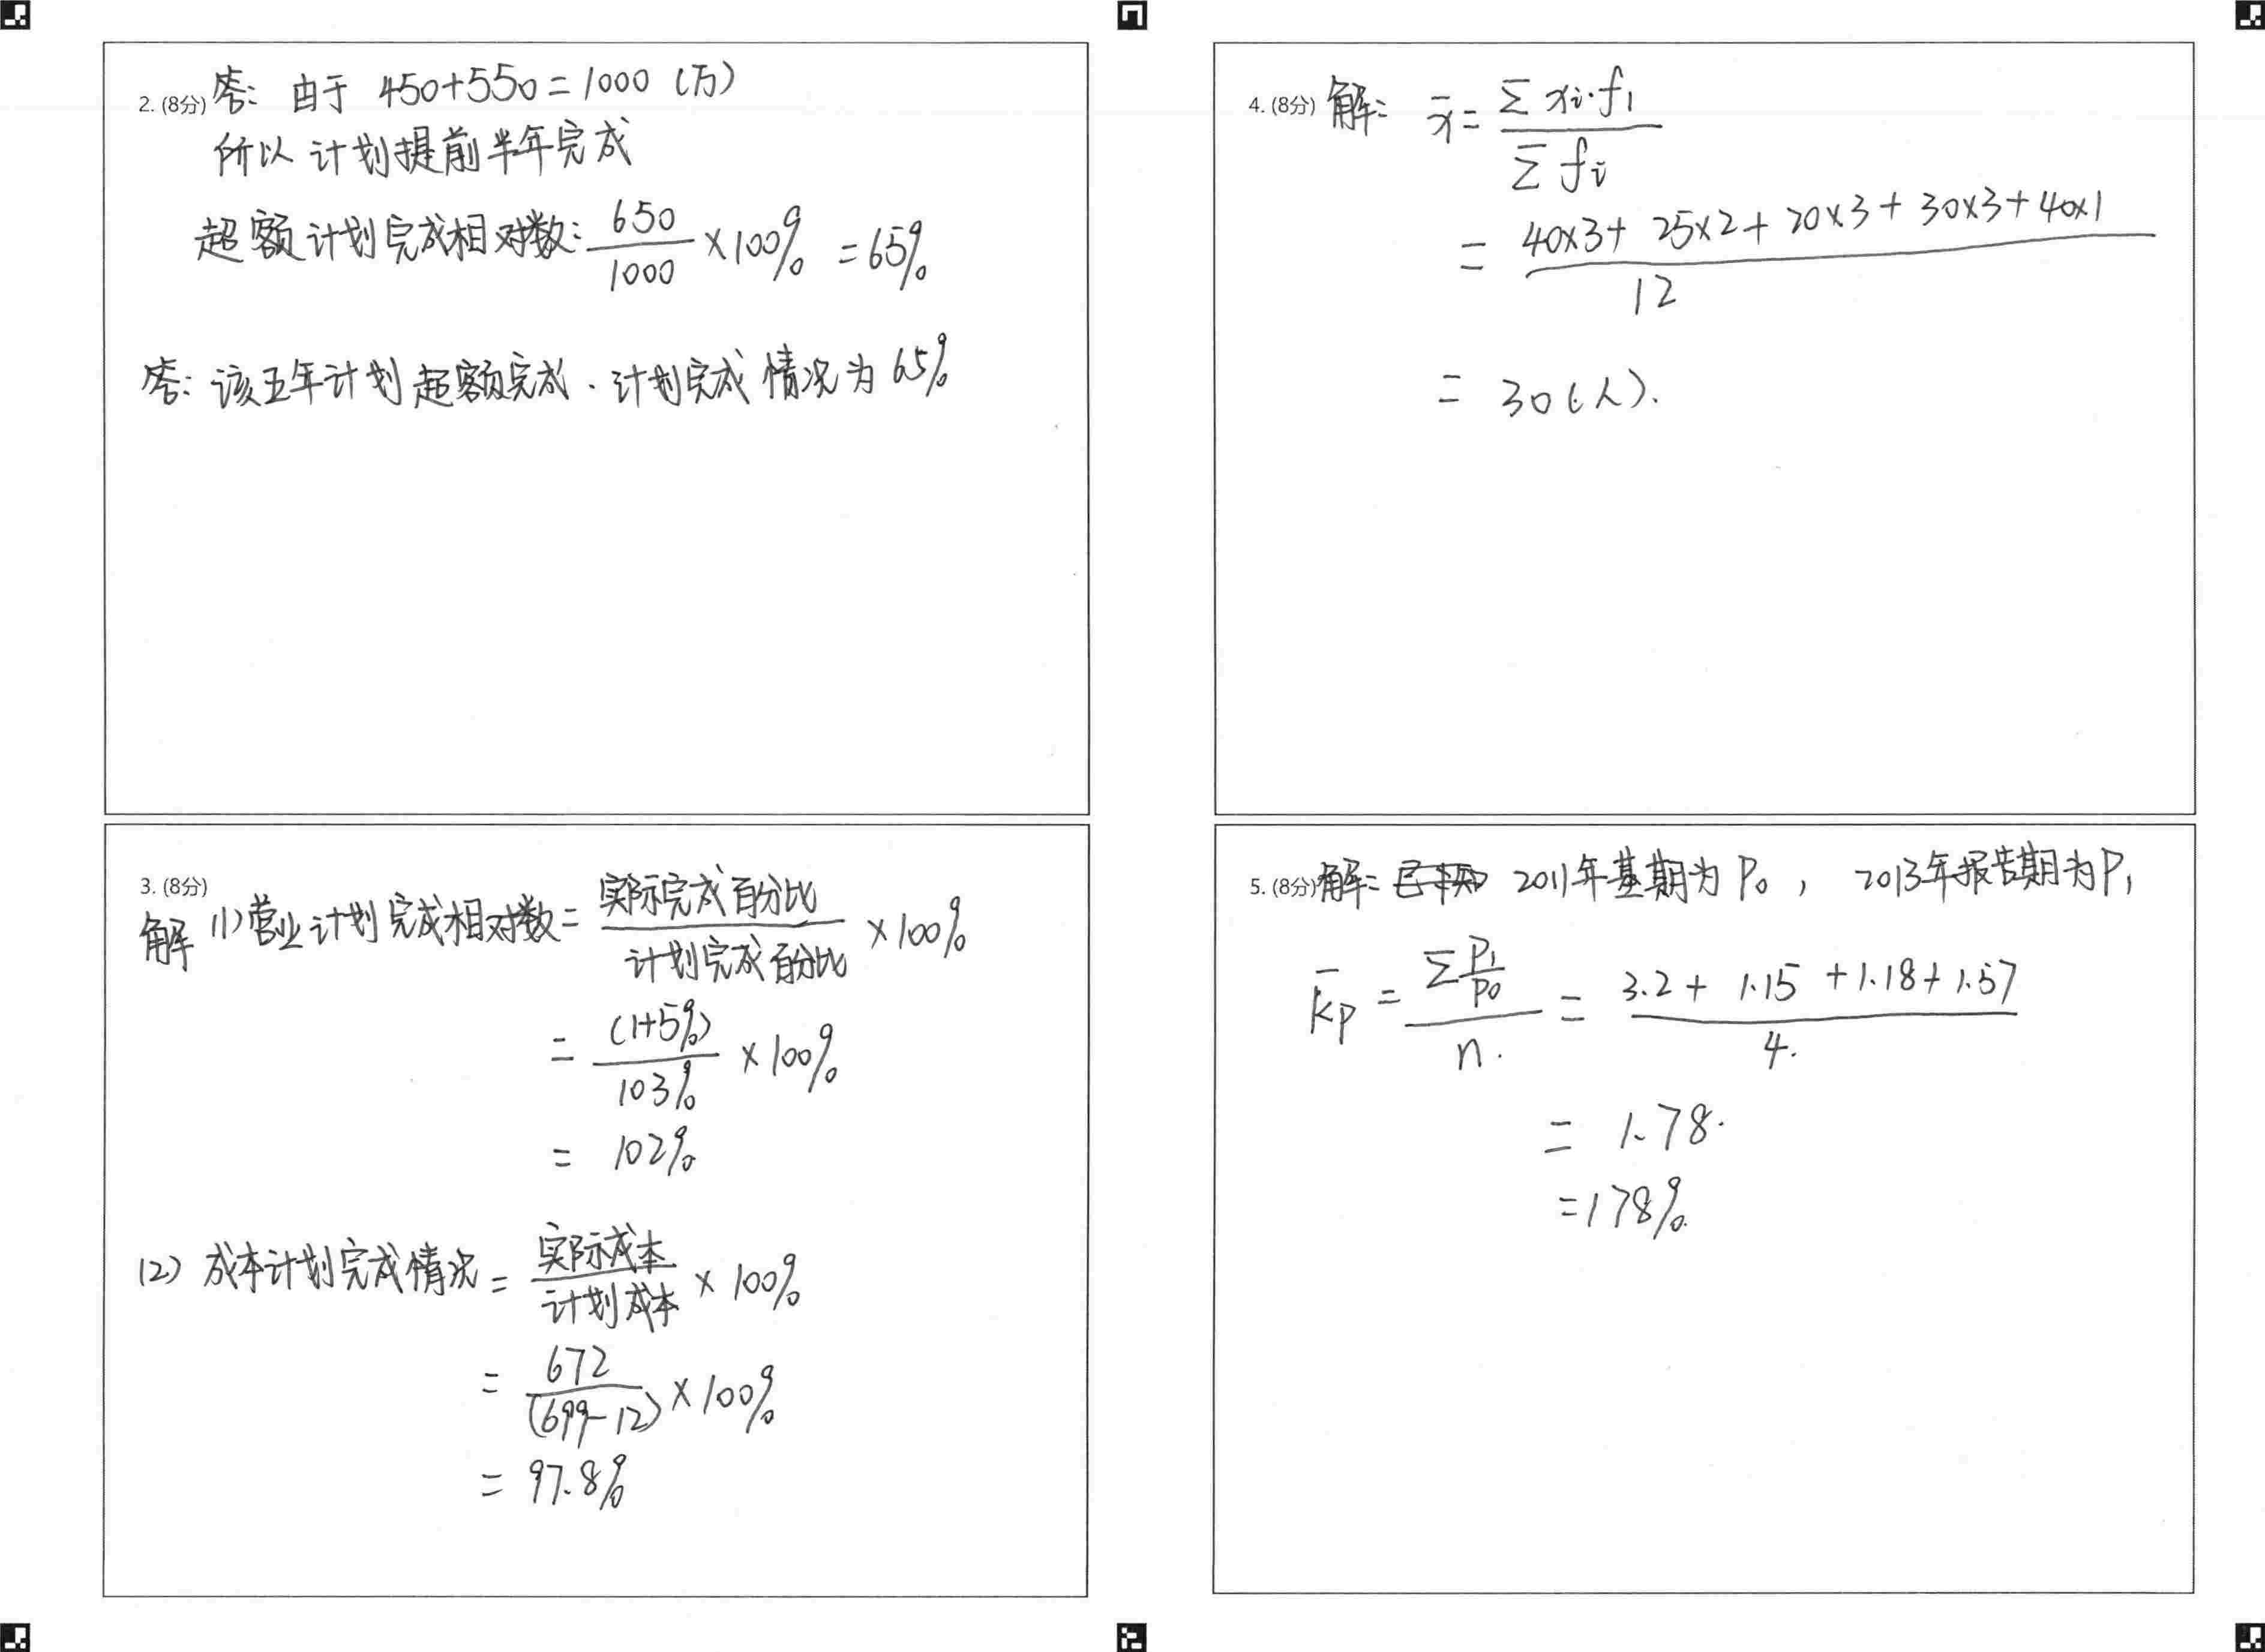 2. (8分) 答: 由于 450+550=1000 (万)
所以 计划提前半年完成
超额计划完成相对数: 650/1000 ×100% =65%
答: 该五年计划超额完成. 计划完成情况为 65%
3. (8分)
解 (1) 营业计划完成相对数 = 实际完成百分比/计划完成百分比 ×100%
= (1+5%)/103% ×100%
= 102%
(2) 成本计划完成情况 = 实际成本/计划成本 × 100%
= 672/(699-12) ×100%
= 97.8%
4. (8分) 解: x̄ = Σxi·f1/Σfi
= 40×3+ 25×2+ 20×3+ 30×3+ 40×1/12
= 30(人).
5. (8分) 解: 2011年基期为P0, 2013年报告期为P1
k̄p = Σ P1/P0 / n. = 3.2+ 1.15 +1.18+ 1.57/4.
= 1.78.
=178%